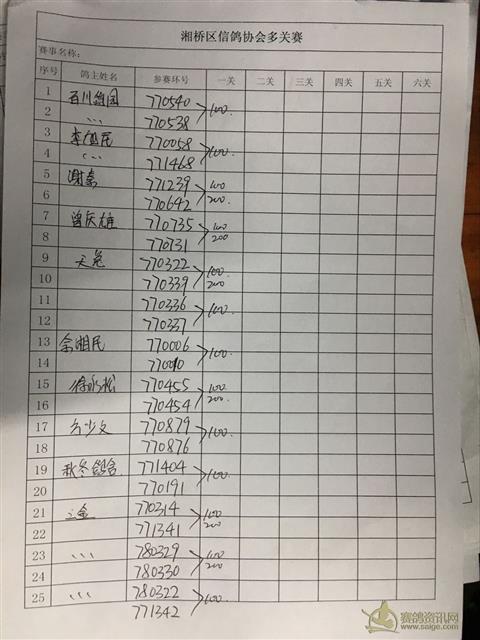 湘桥区信鸽协会多关赛
赛事名称:
序号 鸽主姓名 参赛环号 一关 二关 三关 四关 五关 六关
1 百川鸽园 770540 100
2 〃 770538
3 李 民 770058 100
4 〃 771468
5 谢 771239 100
6 770642 200
7 曾庆雄 770735 100
8 770731 200
9 天 770322 100
10 770339 200
11 770336 100
12 770337
13 余湘民 770006 100
14 770010
15 徐永松 770455 100
16 770454 200
17 方少文 770879 100
18 770876
19 秋冬鸽舍 771404 100
20 770191
21 三 770314 100
22 771341 200
23 〃 780329 100
24 780330 200
25 〃 780322 100
771342
赛鸽资讯网
www.saige.com